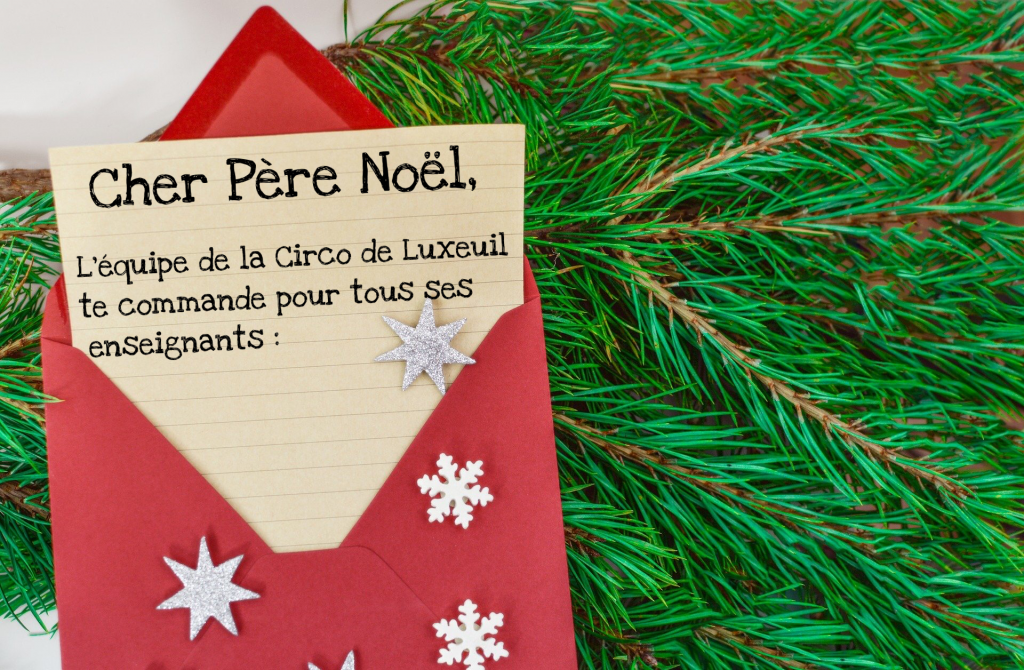 Cher Père Noël,
L'équipe de la Circo de Luxeuil
te commande pour tous ses
enseignants :